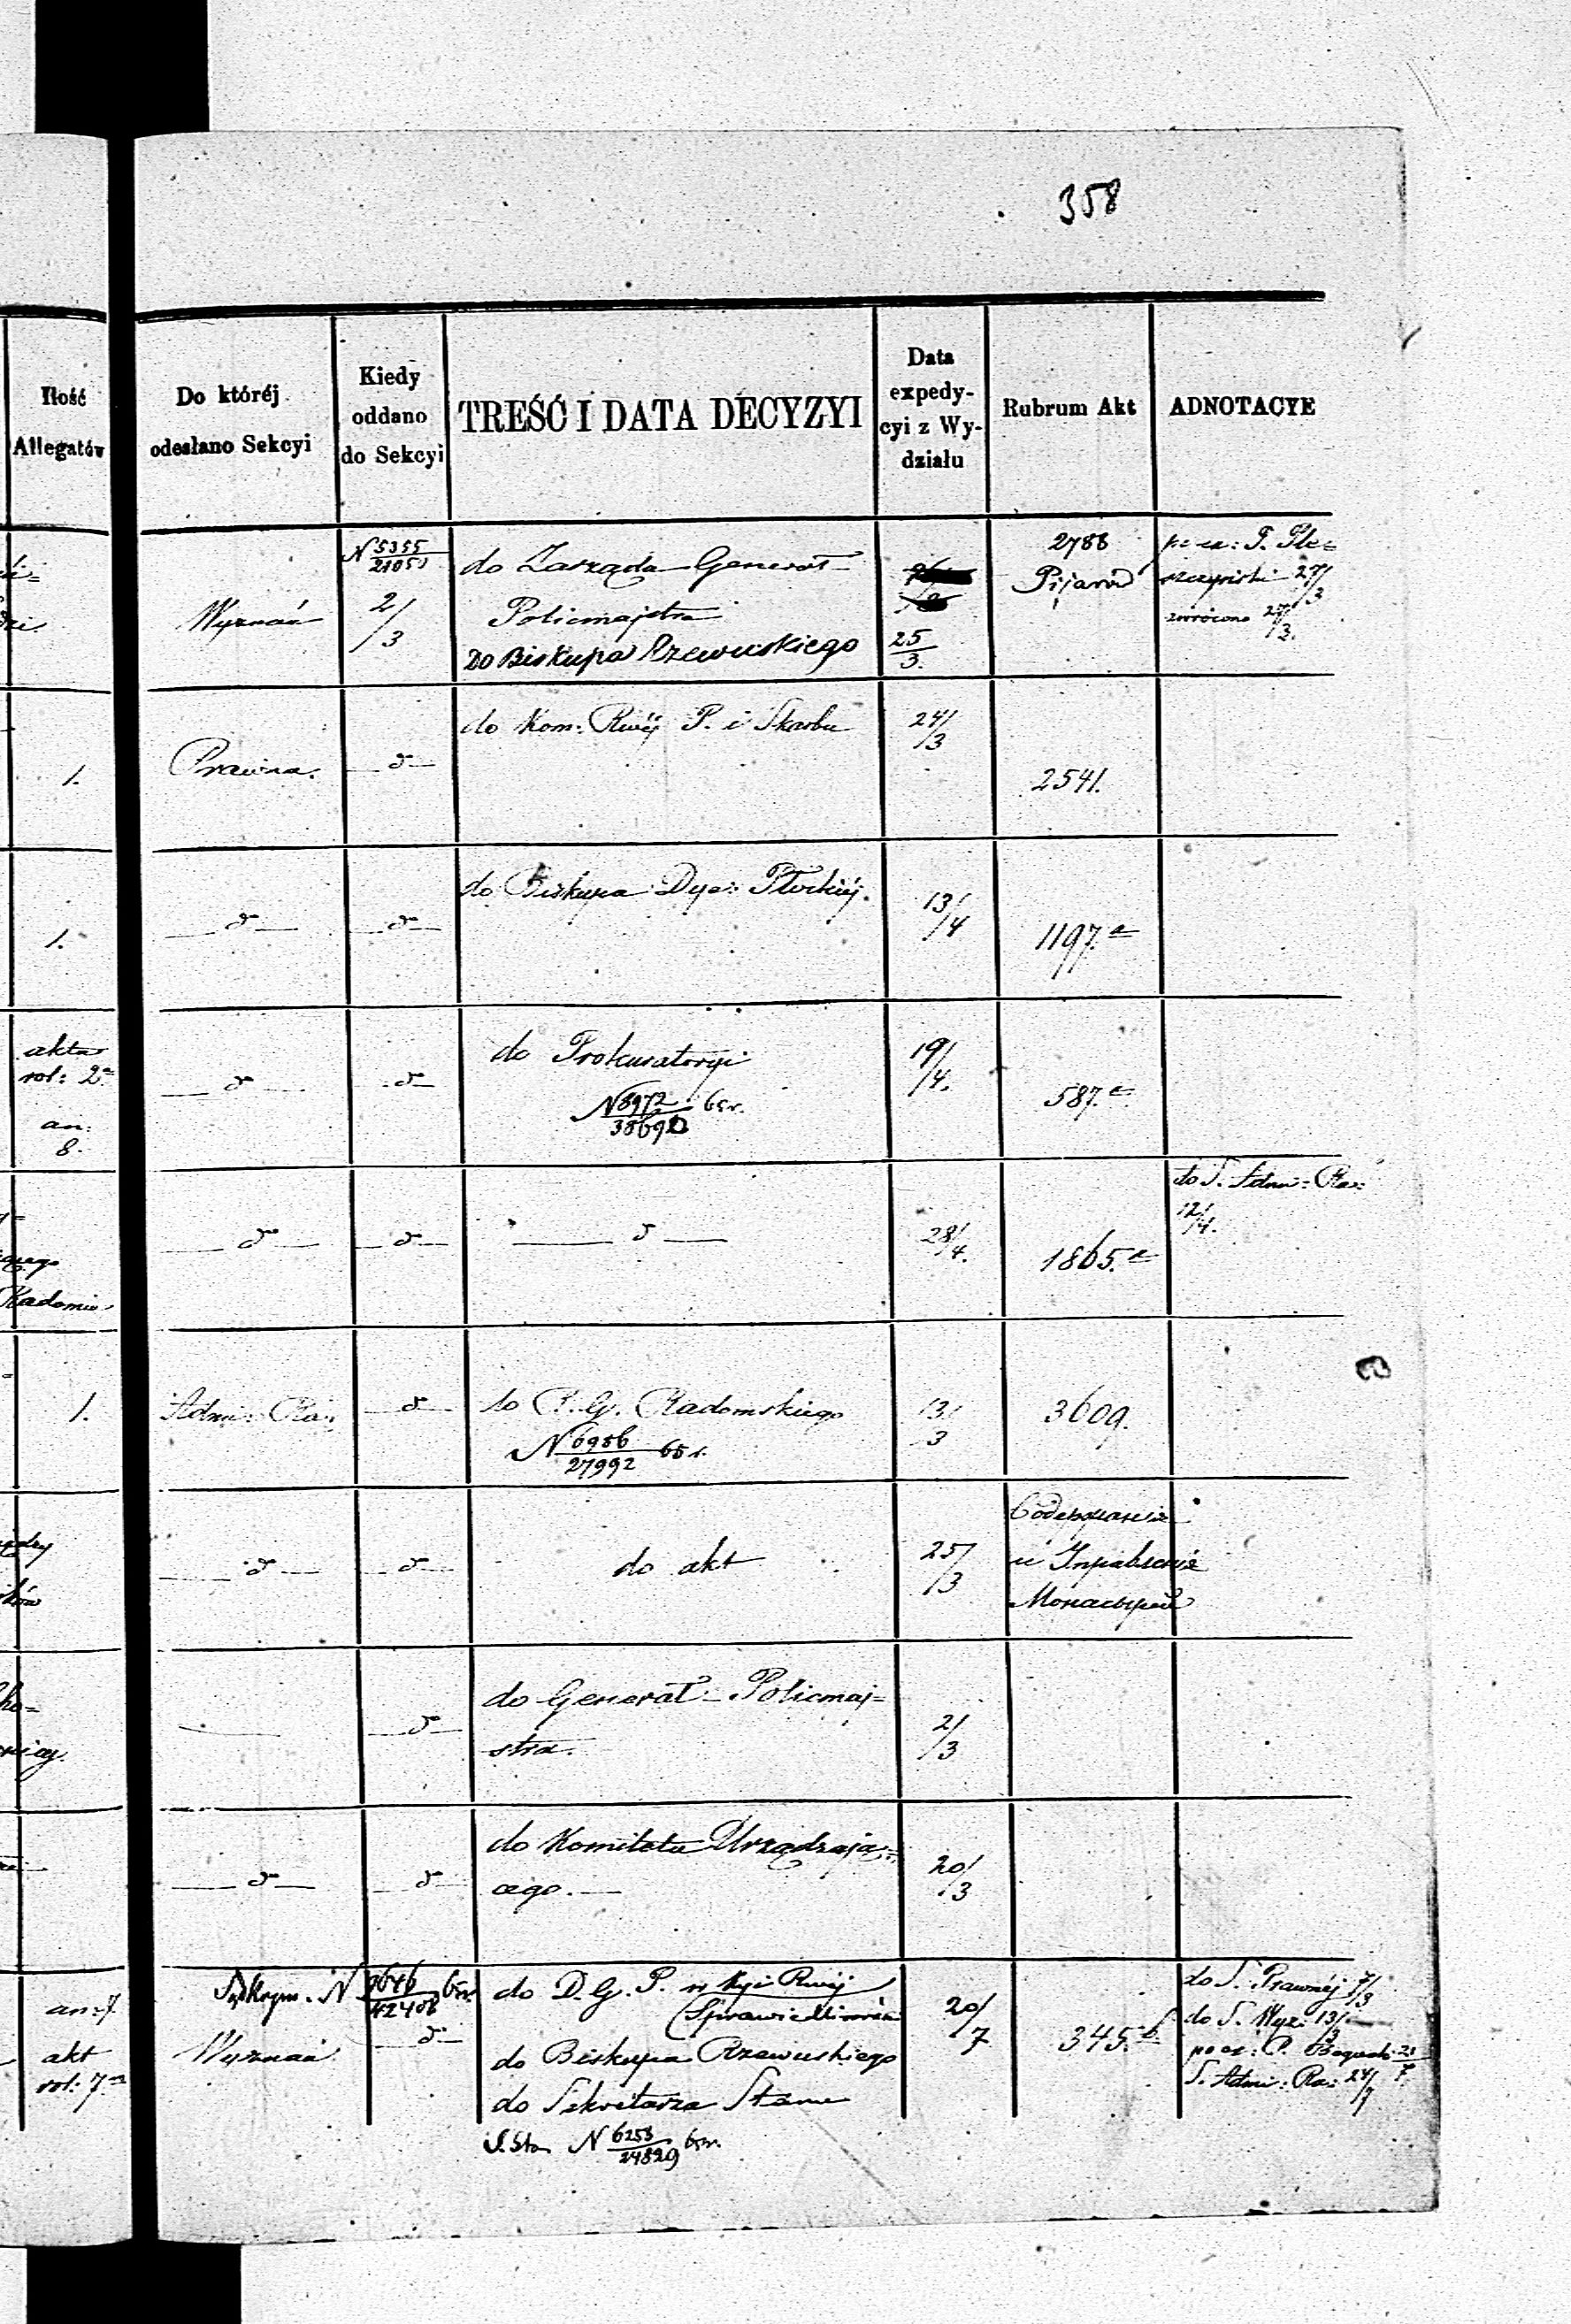 358
Ilość
Allegatów
Do któréj
odesłano Sekcyi
Kiedy
oddano
do Sekcyi
TREŚĆ I DATA DECYZYI
Data
expedy-
cyi z Wy-
działu
Rubrum Akt
ADNOTACYE
N 5355
Wyznań
2/3
do Zarządu Generał
Policmajstra
Do Biskupa Rzewuskiego
25/3.
2788
Pijarów
szczyński 27/3
zwrócono 27/3.
1.
Prawna.
—d—
do Kom: Rwéj P. i Skarbu
24/3
2541.
1.
—d—
—d—
do Biskupa Dye: Płockiéj.
13/4
1197.a
akta
vol: 2
an:
8.
—d—
—d—
do Prokuratoryi
N 6972/38690 65 r.
19/4.
587.a
Radomiu
—d—
—d—
—d—
28/4.
1865.a
do S. Adm: Ra:
12/4.
1.
Adm: Ra:
—d—
do R. G. Radomskiego
N 6956/27992 65 r.
13/3
3609.
—d—
—d—
do akt
25/3
—d—
do Generał-Policmaj=
stra.
2/3
—d—
—d—
do Komitetu Urządzają=
cego.
20/3
an: 7
akt
vol: 7
N 9646/42408 65 r.
Wyznań
—d—
do D. G. P. w Kyi Rwéj
Sprawiedliwości
do Biskupa Rzewuskiego
do Sekretarza Stanu
S. Sta N 6253/24829 65 r.
20/7
345.b
do S. Prawnéj 7/3
do S. Wyz: 13/3
S. Adm: Ra: 24/7